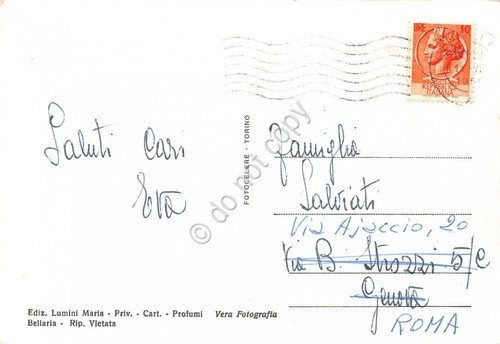 LIRE 10
Saluti Cari
Eva
FOTOCELERE - TORINO
Famiglia
Salviati
Via Ajaccio, 20
Via B. Strozzi 5/C
Genova
ROMA
Ediz. Lumini Maria - Priv. - Cart. - Profumi Vera Fotografia
Bellaria - Rip. Vietata
© do not copy